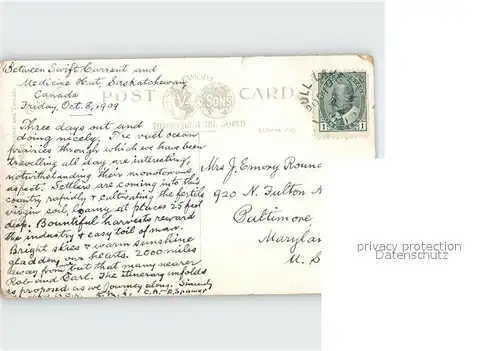 Between Swift Current and
Medicine Hat, Saskatchewan,
Canada
Friday, Oct. 8, 1909
Three days out and
doing nicely. The vast ocean
prairies through which we have been
travelling all day are interesting,
notwithstanding their monotonous
aspect. Settlers are coming into this
country rapidly & cultivating the fertile
virgin soil, loamy at places 25 feet
deep. Bountiful harvests reward
the industry & easy toil of man.
Bright skies & warm sunshine
gladden our hearts. 2000 miles
away from but that many nearer
Rob and Carl. The itinerary unfolds
as proposed as we journey along. Sincerely
POST CARD
FAMOUS
& SONS
THROUGHOUT THE WORLD
BULL
1 1
Mrs J. Emory Roun
920 N. Fulton A
Baltimore
Marylan
U. S
privacy protection
AnsichtsKartenVersand.com